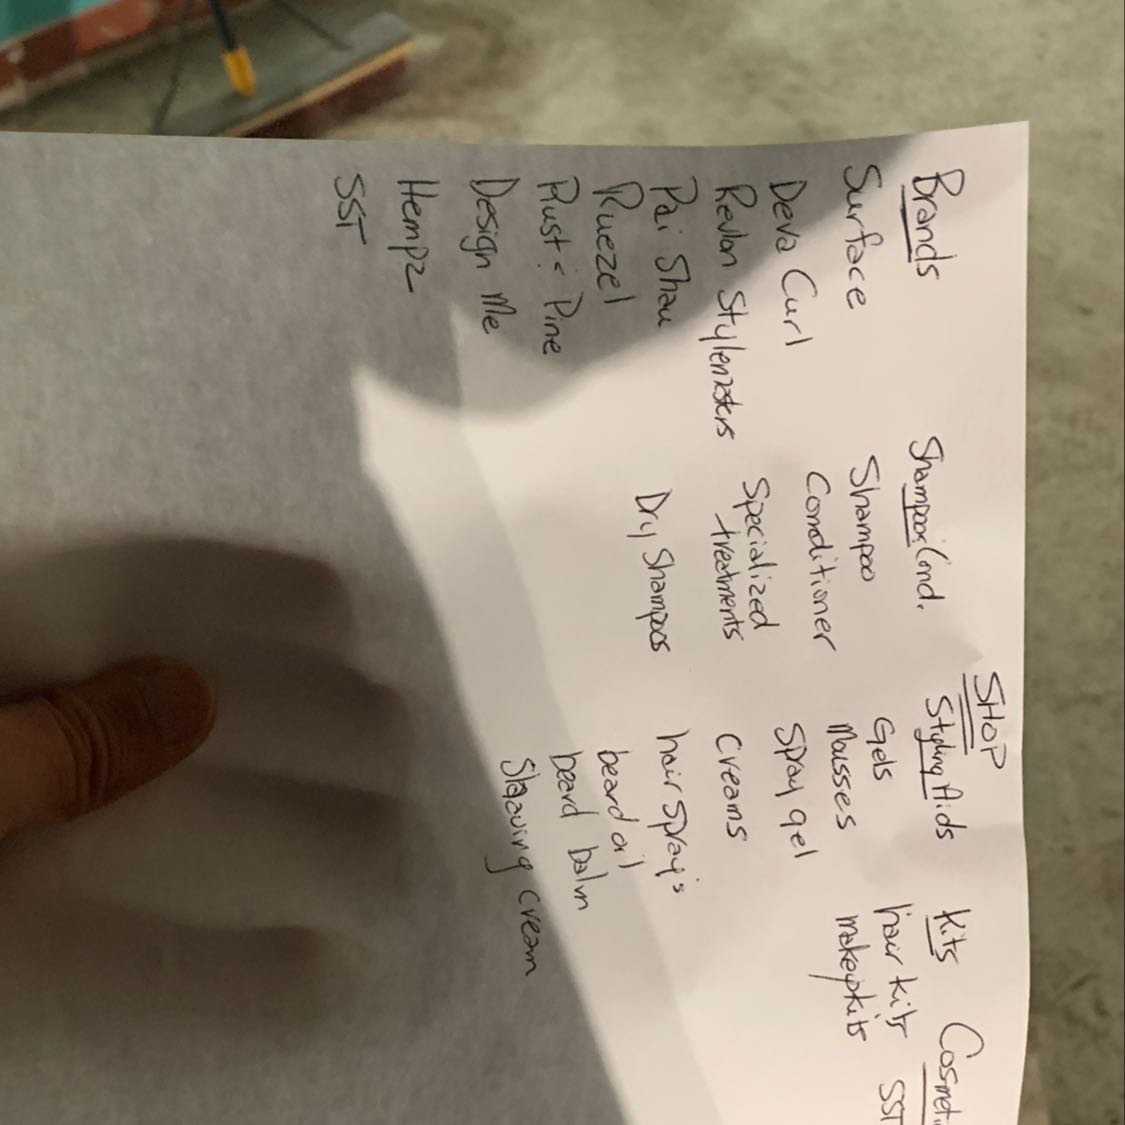 SHOP
Brands
Surface
Deva Curl
Revlon Stylemasters
Pai Shau
Ruezel
Rustic Pine
Design Me
Hempz
SST
Shampoo: Cond.
Shampoo
Conditioner
Specialized
treatments
Dry Shampoos
Styling Aids
Gels
Mousses
Spray gel
Creams
hair spray's
beard oil
beard balm
Shaving cream
Kits
hair kits
makeup kits
Cosmeti
SST